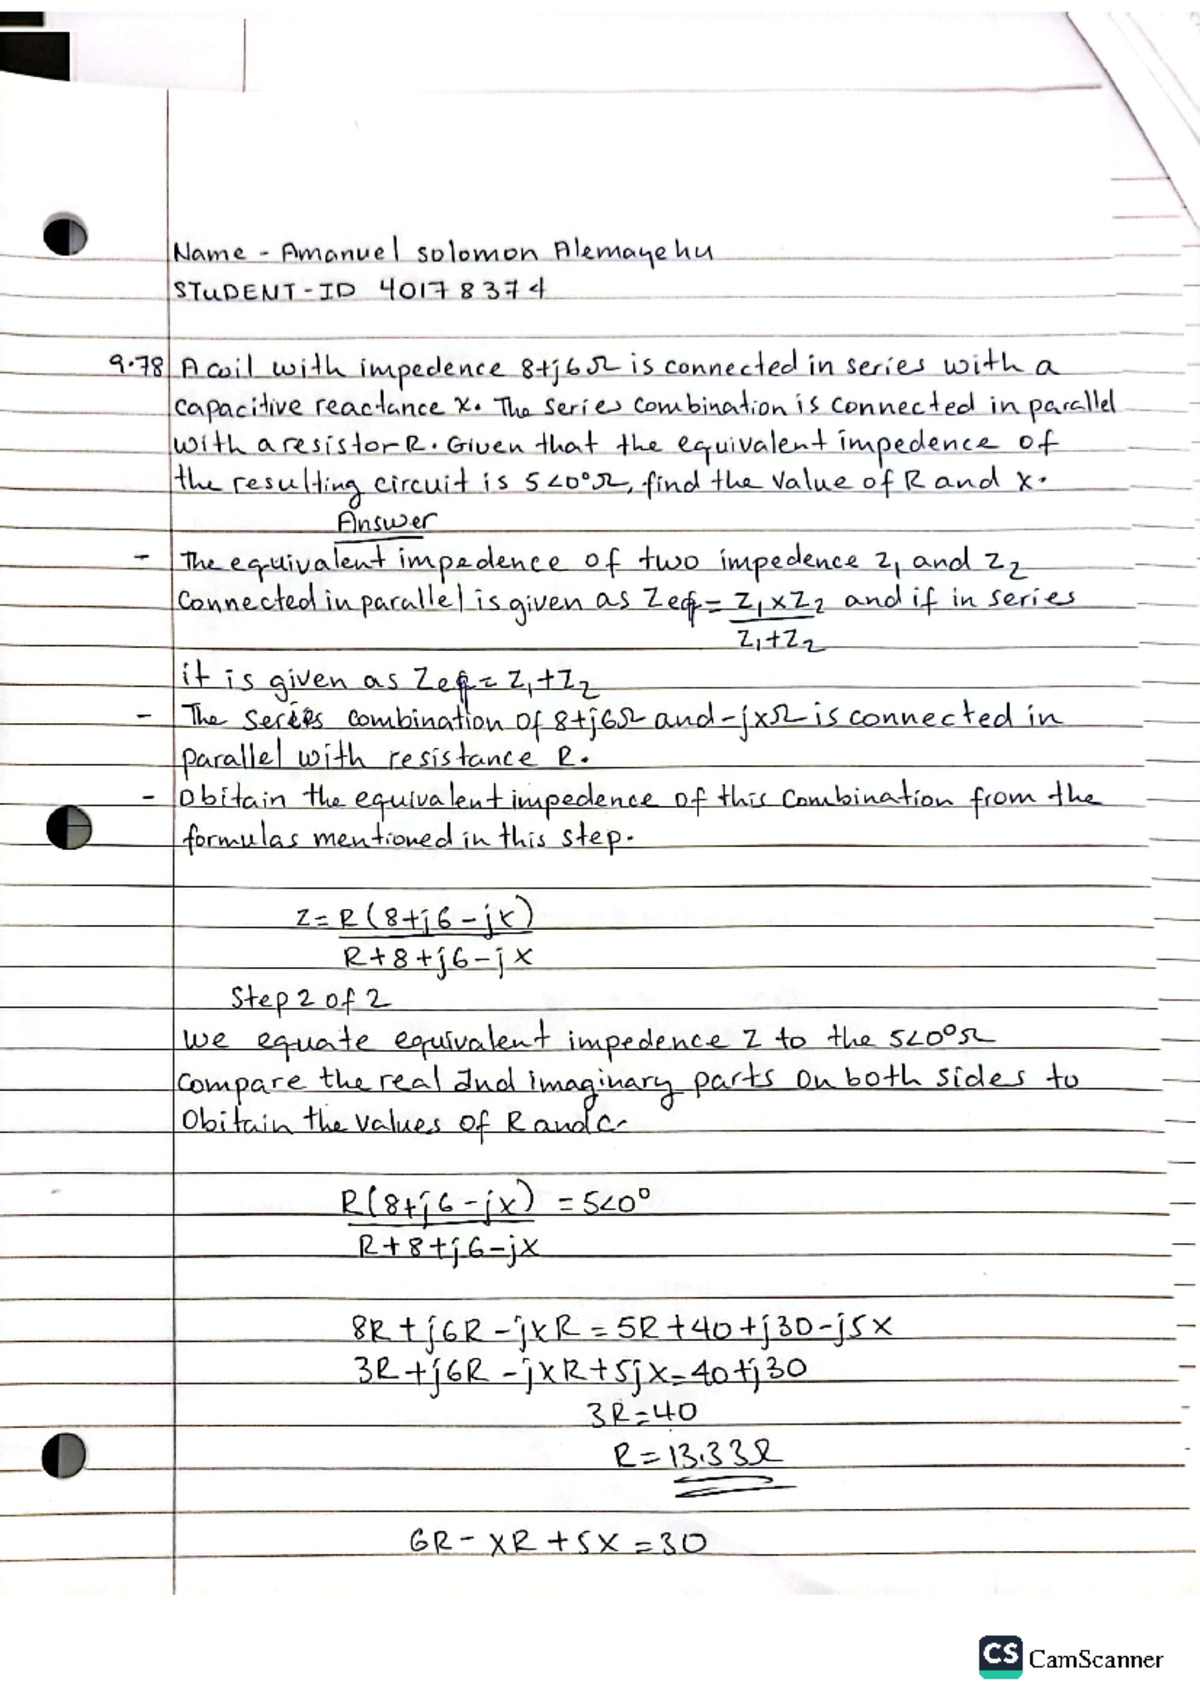 Name - Amanuel solomon Alemayehu
STUDENT-ID 40178374
9.78 A coil with impedence 8+j6Ω is connected in series with a
capacitive reactance x. The series combination is connected in parallel
with a resistor R. Given that the equivalent impedence of
the resulting circuit is 5<0°Ω, find the value of R and x.
Answer
- The equivalent impedence of two impedence z₁ and z₂
Connected in parallel is given as Zeq = Z₁xZ₂ and if in series
Z₁+Z₂
it is given as Zeq = Z₁+Z₂
- The series combination of 8+j6Ω and -jxΩ is connected in
parallel with resistance R.
- Obitain the equivalent impedence of this combination from the
formulas mentioned in this step.
Z = R(8+j6-jx)
R+8+j6-jx
Step 2 of 2
we equate equivalent impedence Z to the 5<0°Ω
compare the real and imaginary parts on both sides to
Obitain the values of R and c.
R(8+j6-jx) = 5<0°
R+8+j6-jx
8R+j6R-jxR = 5R+40+j30-j5x
3R+j6R-jxR+5jx=40+j30
3R=40
R=13.33Ω
6R-xR+5x=30
CS CamScanner